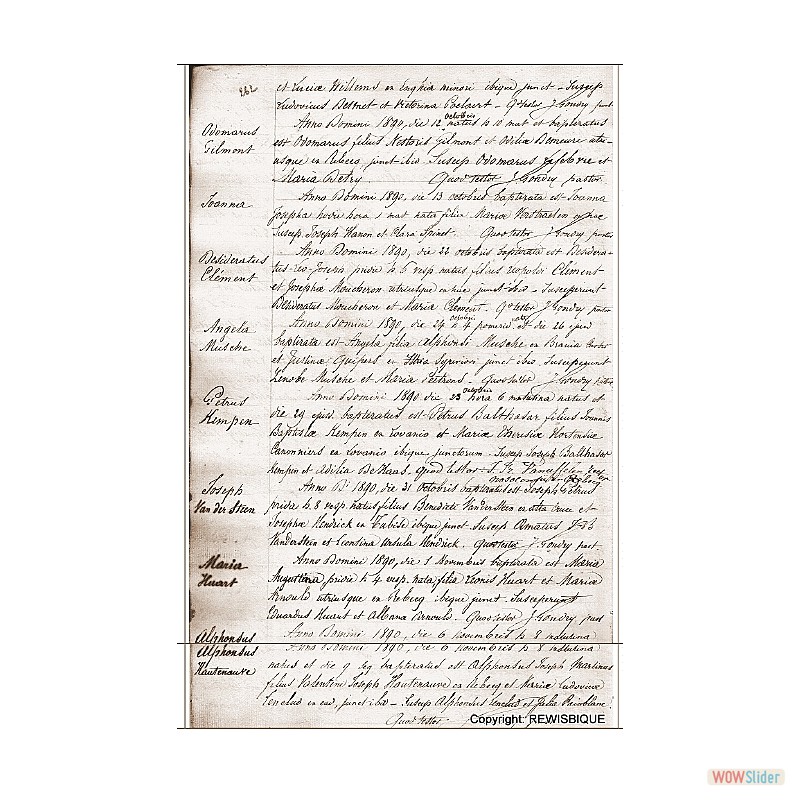 262
et Luciæ Willems ex Enghia minori ibique junct - Suscep
Ludovicus Desmet et Victorina Poelaert - Q. testor J. Gondry past
Odomarus Gilmont
octobris
Anno Domini 1890, die 12 natus h 10 mat et baptizatus
est Odomarus filius Nestoris Gilmont et Odiliæ Demeure utri-
usque ex Rebecq junct ibid Suscep Odomarus Lefebvre et
Maria Detry Quod testor J. Gondry pastor
Joanna
Anno Domini 1890, die 13 octobris baptizata est Joanna
Josepha hodie hora 1 mat nata filia Mariæ
Suscep. Joseph Hanon et Clara Spinet. Quod testor J. Gondry pastor
Desideratus Clément
Anno Domini 1890, die 22 octobris baptizatus est Desidera-
tus-Leo-Joseph pridie h 6 vesp natus filius Leopoldi Clément
et Josephæ Moucheron utriusque ex hac junct ibid - Susceperunt
Desideratus Moucheron et Maria Clément. Q. testor J. Gondry pastor
Angela Musche
octobris nata
Anno Domini 1890, die 24 h 4 pomerid. et die 26 ejusd
baptizata est Angela filia Alphonsi Musche ex Brania
et Justinæ Cuipers ex junct ibid. Susceperunt
Zenobe Musche et Maria Peetrons - Quod testor J. Gondry pastor
Petrus Kempen
octobris
Anno Domini 1890 die 23 hora 6 matutina natus et
die 29 ejusd baptizatus est Petrus Balthasar filius Joannis
Baptistæ Kempen ex Lovanio et Mariæ Theresiæ Hortensiæ
Canonniers ex Lovanio ibique junctorum - Suscep Joseph Balthasar
Kempen et Adilia De Haas. Quod testor
Joseph Van der Steen
Anno D. 1890, die 31 octobris baptizatus est Joseph Petrus
pridie h 8 vesp. natus filius Benedicti Vander Steen ex ista Cruce et
Josephæ Hendrick ex Tubise ibique junct Suscep Amatus J-B
Vandersteen et Leontina Ursula Hendrick. Quod testor J. Gondry past.
Maria Huart
Anno Domini 1890, die 1 Novembris baptizata est Maria
Augustina, pridie h 4 vesp. nata filia Leonis Huart et Mariæ
Arnould utriusque ex Rebecq ibique junct. Susceperunt
Eduardus Huart et Albonna Arnould - Quod testor J. Gondry past
Alphonsus
Anno Domini 1890, die 6 novembris h 8 matutina
Alphonsus Hautenauve
Anno Domini 1890, die 6 novembris h 8 matutina
natus et die 9 seq baptizatus est Alphonsus Joseph Martinus
filius Valentini Joseph Hautenauve ex Rebecq et Mariæ Ludovicæ
Lenclud ex ead, junct ibid - Suscep Alphonsus Lenclud et Julia Reinblanc
Quod testor
Copyright: REWISBIQUE
WOWSlider